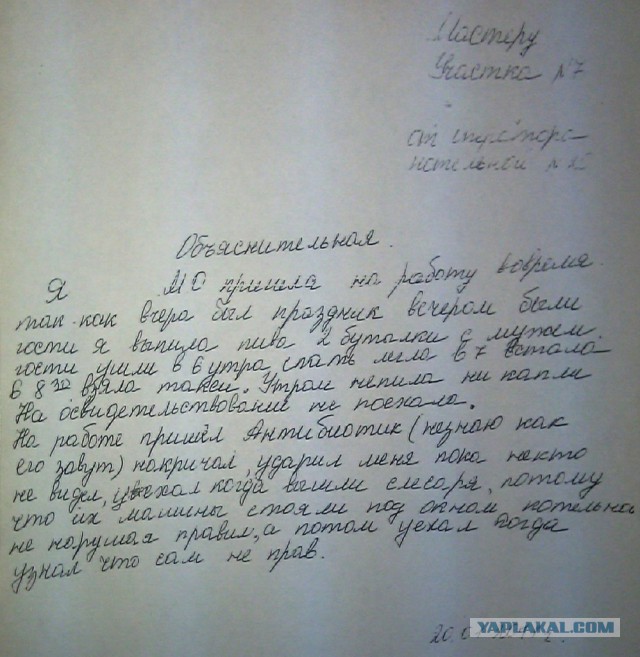 Мастеру
Участка №7
от оператора
котельной №
Объяснительная.
Я МО пришла на работу вовремя.
так как вчера был праздник вечером были
гости я выпила пива 2 бутылки с мужем.
гости ушли в 6 утра, спать легла в 7 встала
в 8 30 взяла такси. Утром непила ни капли
На освидетельствование не поехала.
На работе пришёл Антибиотик (незнаю как
его завут) накричал, ударил меня пока некто
не видел, уехал когда вышли слесаря, потому
что их машины стояли под окном котельной
не нарушая правил, а потом уехал когда
узнал что сам не прав.
20.
YAPLAKAL.COM